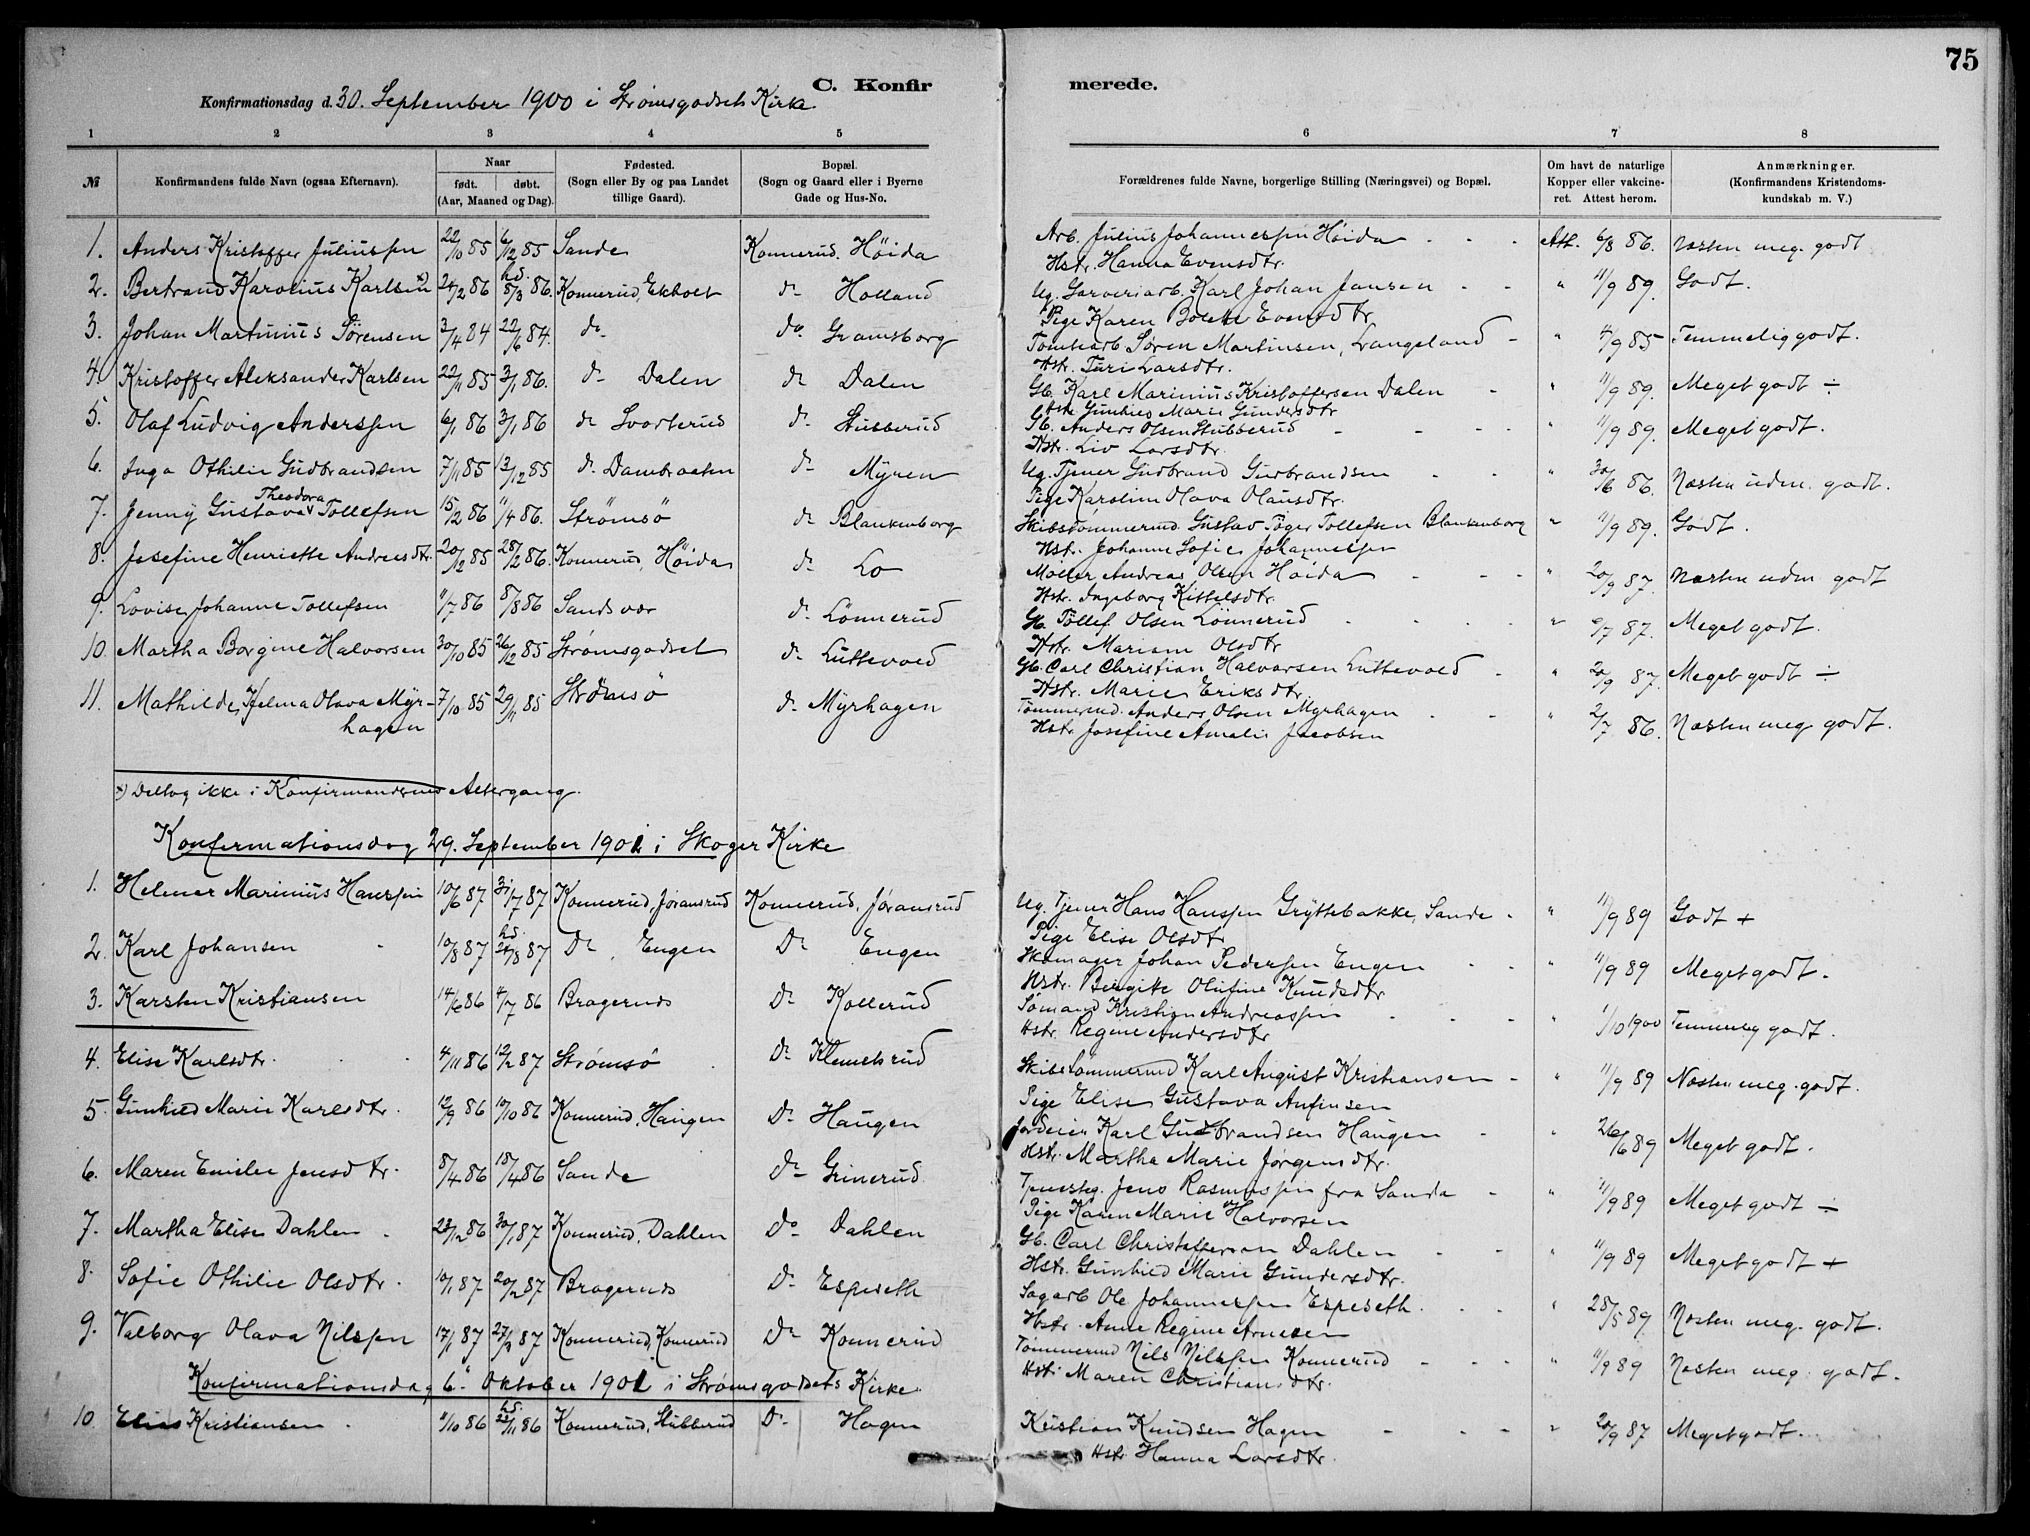 75
C. Konfirmerede.
Konfirmationsdag d. 30. September 1900 i Strømsgodsets Kirke
1 2 3 4 5 6 7 8
№ Konfirmandens fulde Navn (ogsaa Efternavn). Naar født. døbt. (Aar, Maaned og Dag). Fødested. (Sogn eller By og paa Landet tillige Gaard). Bopæl. (Sogn og Gaard eller i Byerne Gade og Hus-No. Forældrenes fulde Navne, borgerlige Stilling (Næringsvei) og Bopæl. Om havt de naturlige Kopper eller vakcineret. Attest herom. Anmærkninger. (Konfirmandens Kristendomskundskab m. V.)
1. Anders Kristoffer Juliussen 22/10 85 6/12 85 Sande Konnerud. Höida Arb. Julius Johannessen Höida - - - Att. 6/8 86. Næsten meg. godt
Hstr. Hanna Evensdtr.
2. Bertrand Karolius Karlsen x) 24/2 86 hd. 8/3 86. Konnerud, Ekholt do Holland Ug. Garveriarb. Karl Johan Jansen - - " 11/9 89. Godt.
Pige Karen Bolette Evensdtr
3. Johan Martinius Sörensen 3/4 84 22/6 84. do do Gramsborg Tomtearb Søren Martinsen, Langeland - " 4/9 85 Temmelig godt.
Hstr. Turi Larsdtr.
4. Kristoffer Aleksander Karlsen 22/11 85 3/1 86. do Dalen do Dalen Gb. Karl Marinius Kristoffersen Dalen - " 11/9 89. Meget godt ÷
Hstr Gunhild Marie Gundersdtr
5. Olaf Ludvig Anderssen 6/1 86 3/1 86 do Svarterud do Stubberud Gb. Anders Olsen Stubberud - - - - " 11/9 89. Meget godt.
Hstr. Liv Larsdtr.
6. Inga Othilie Gudbrandsen 7/11 85 13/12 85 do Dambraaten do Myren Ug. Tjener Gudbrand Gudbrandsen - - " 30/6 86. Næsten udm. godt.
Pige Karoline Olava Olausdtr.
7. Jenny Gustava Theodora Tollefsen 15/2 86 11/4 86. Strömsö do Blankenborg Skibstömmermd. Gustav Töger Tollefsen Blankenborg " 11/9 89. Godt.
Hstr. Johanne Sofie Johannessen
8. Josefine Henriette Andreasdtr. 20/12 85 28/2 86. Konnerud, Höida do Lo Möller Andreas Olsen Höida - - - " 20/9 87. Næsten udm. godt
Hstr. Ingeborg Kittelsdtr.
9. Lovise Johanne Tollefsen 11/7 86 8/8 86 Sandsvær do Lönnerud Gb. Tollef Olsen Lönnerud - - - - " 6/7 87. Meget godt.
Hstr. Mariam Olsdtr
10. Martha Borgine Halvorsen 30/10 85 26/12 85 Strømsgodset do Luttevold Gb. Carl Christian Halvorsen Luttevold - " 20/9 87. Meget godt ÷
Hstr. Marie Eriksdtr.
11. Mathilde Hjelma Olava Myrhagen 7/10 85 29/11 85 Strömsö do Myrhagen Tömmermd. Anders Olsen Myrhagen - - " 2/7 86. Næsten meg godt.
Hstr. Josefine Amalie Jacobsen
x) Deltog ikke i Konfirmandernes Altergang.
Konfirmationsdag 29. September 1901 i Skoger Kirke
1. Helmer Marinius Hanssen 10/6 87 31/7 87 Konnerud, Jøransrud Konnerud, Jøransrud Ug. Tjener Hans Hanssen Gryttebakke, Sande - " 11/9 89 Godt +
Pige Elise Olsdtr
2. Karl Johansen 10/8 87 hd. 21/8 87 Do, Engen Do Engen Skomager Johan Pedersen Engen - - " 11/9 89 Meget godt.
Hstr. Birgitte Olufine Knudsdtr
3. Karsten Kristiansen 14/6 86 4/7 86 Bragernes Do Kollerud Sømand Kristian Andreassen - - - " 1/10 1900 Temmelig godt.
Hstr. Regine Andersdtr
4. Elise Karlsdtr. 4/11 86 12/2 87 Strømsö Do Klemetsrud Skibstömmermd Karl August Kristiansen - " 11/9 89 Næsten meg. godt.
Pige Elise Gustava Anfinsen
5. Gunhild Marie Karlsdtr. 12/9 86 10/10 86 Konnerud, Haugen Do Haugen Jordeier Karl Gudbrandsen Haugen - " 26/6 89 Meget godt.
Hstr. Martha Marie Jørgensdtr.
6. Maren Emilie Jensdtr. 8/4 86 18/4 86 Sande Do Grinerud Tjenesteg. Jens Rasmussen fra Sande - " 11/9 89 Meget godt ÷
Pige Karen Marie Halvorsen
7. Martha Elise Dahlen 23/12 86 30/1 87 Konnerud, Dahlen Do Dahlen Gb. Carl Christoffersen Dahlen - - " 11/9 89 Meget godt +
Hstr. Gunhild Marie Gundersdtr.
8. Sofie Othilie Olsdtr. 10/1 87 20/2 87 Bragernes Do Espeseth Sagarb Ole Johannessen Espeseth. - - " 28/5 89 Næsten meg. godt.
Hstr. Anne Regine Arnesen
9. Valborg Olava Nilssen 17/1 87 27/2 87 Konnerud, Konnerud Do Konnerud Tömmermd Nils Nilssen Konnerud - - - " 11/9 89 Næsten meg. godt.
Hstr. Maren Christiansdtr.
Konfirmationsdag 6. Oktober 1901 i Strømsgodsets Kirke.
10. Elias Kristiansen 11/10 86 hd. 28/11 86 Konnerud, Stubberud Do Hagen Kristian Knudsen Hagen - - - " 20/9 87 Meget godt.
Hstr. Hanna Larsdtr.